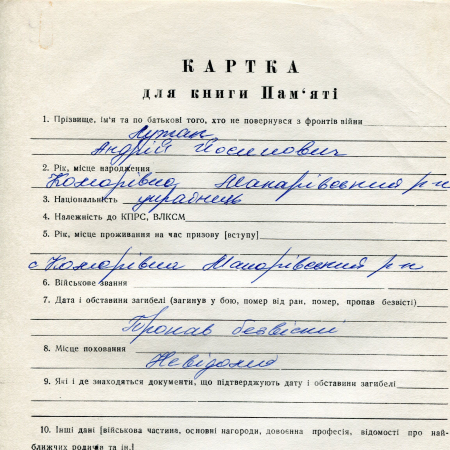 КАРТКА
для книги Пам'яті
1. Прізвище, ім'я та по батькові того, хто не повернувся з фронтів війни
Андрій Йосипович
2. Рік, місце народження
Комарівка Макарівський р-н
3. Національність українець
4. Належність до КПРС, ВЛКСМ
5. Рік, місце проживання на час призову [вступу]
с Комарівка Макарівський р-н
6. Військове звання
7. Дата і обставини загибелі (загинув у бою, помер від ран, помер, пропав безвісті)
Пропав безвісті
8. Місце поховання
Невідомо
9. Які і де знаходяться документи, що підтверджують дату і обставини загибелі
10. Інші дані [військова частина, основні нагороди, довоєнна професія, відомості про най-
ближчих родичів та ін.]